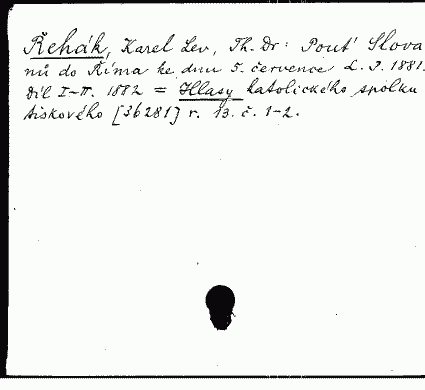 Řehák, Karel Lev, Th. Dr: Pouť Slova
nů do Říma ke dnu 5. července L. P. 1881.
Díl I-II. 1882 = Hlasy katolického spolku
tiskového [36281] r. 13. č. 1-2.